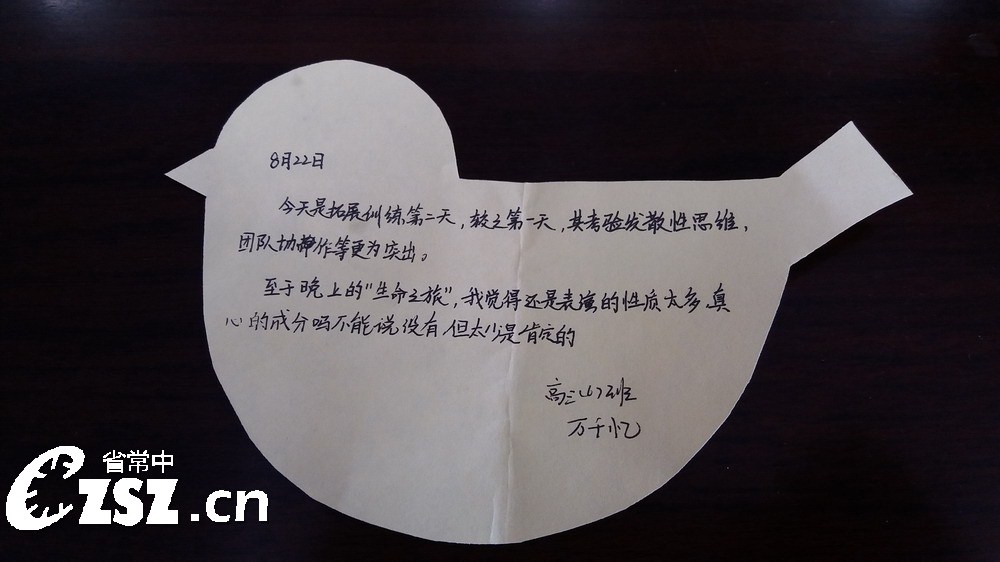 8月22日
今天是拓展训练第二天,较之第一天,其考验发散性思维,
团队协作等更为突出。
至于晚上的“生命之旅”,我觉得还是表演的性质太多,真
心的成分吗不能说没有,但太少是肯定的
高三班
万千忆
省常中
CZSZ.cn